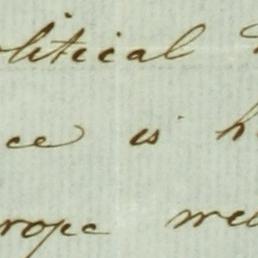 olitical
ce is h
rope we